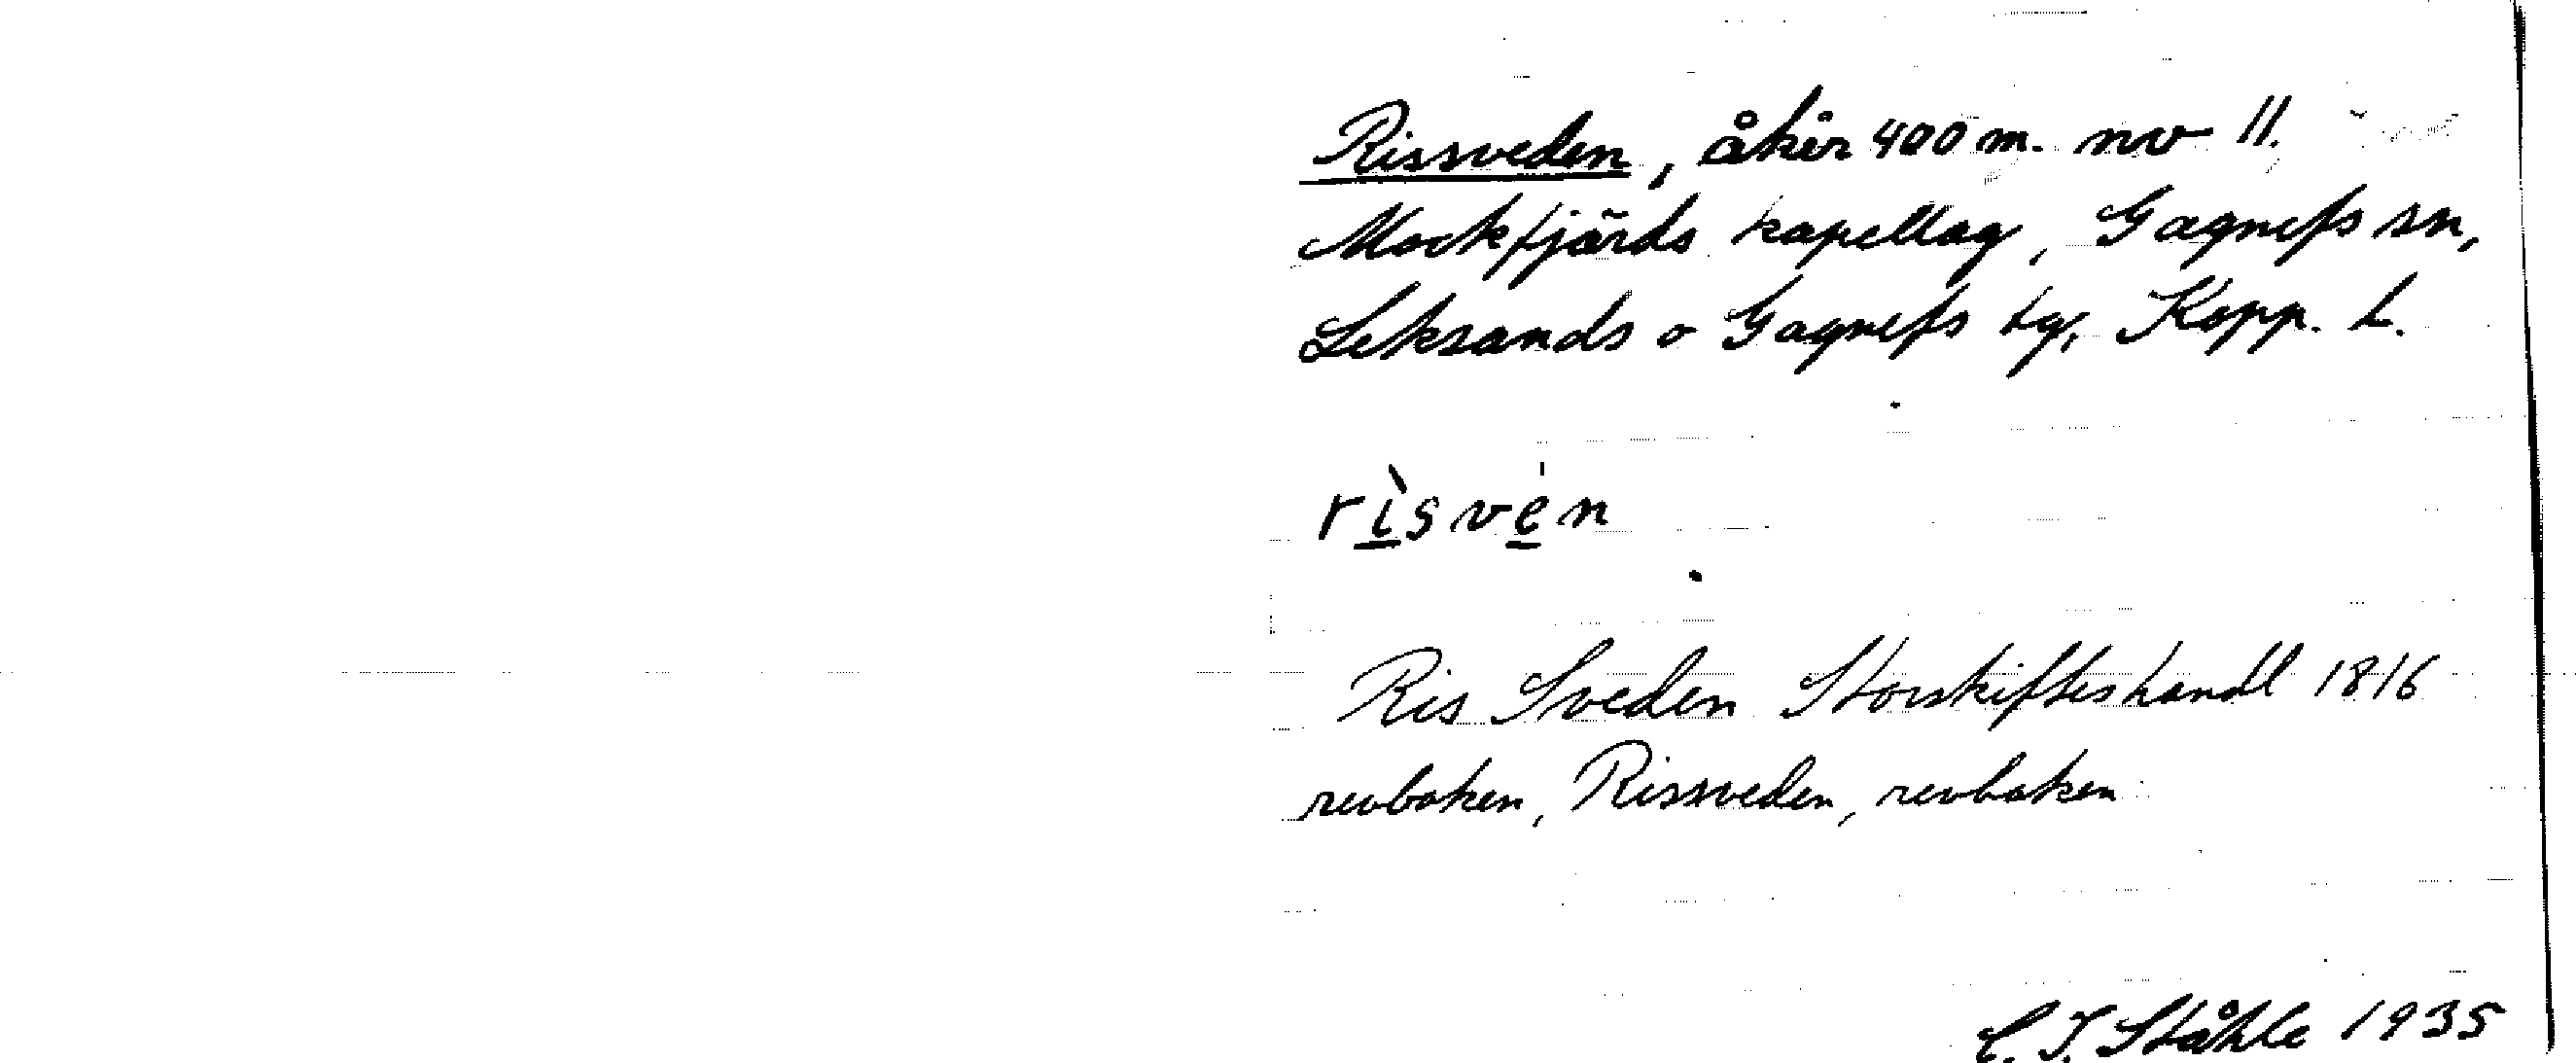 Rissveden, åker 400 m. nv 11.
Mockfjärds kapellag, Gagnefs sn,
Leksands o Gagnefs tg, Kopp. L.
rìsven
Ris Sveden Storskifteshandl 1816
revboken, Rissveden, revboken
C. I. Ståhle 1935